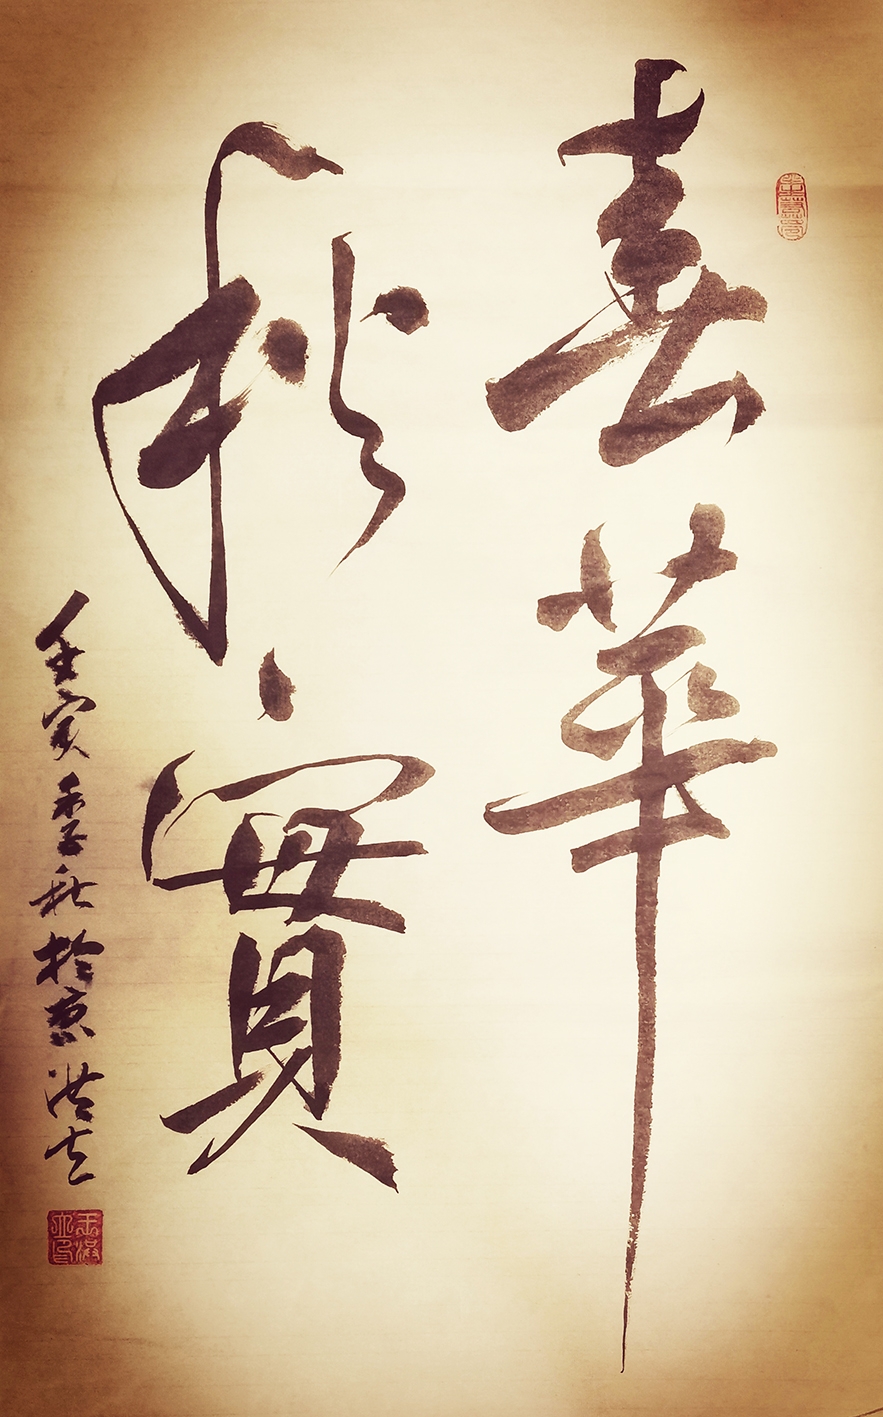 春華
秋實
壬寅季秋於京洪立